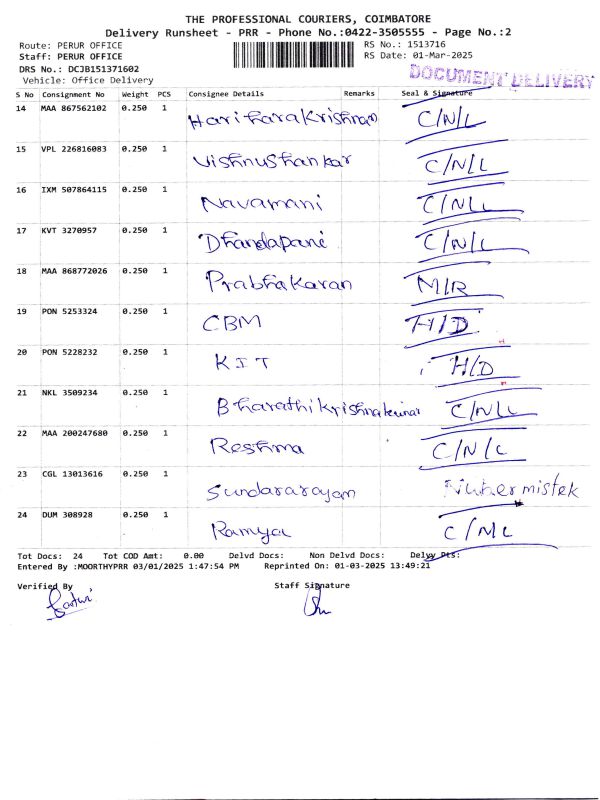 THE PROFESSIONAL COURIERS, COIMBATORE
Delivery Runsheet - PRR - Phone No.:0422-3505555 - Page No.:2
Route: PERUR OFFICE RS No.: 1513716
Staff: PERUR OFFICE RS Date: 01-Mar-2025
DRS No.: DCJB151371602
Vehicle: Office Delivery
DOCUMENT DELIVERY
S No Consignment No Weight PCS Consignee Details Remarks Seal & Signature
14 MAA 867562102 0.250 1 Hariharakrishnan C/N/L
15 VPL 226816083 0.250 1 Vishnushankar C/N/L
16 IXM 507864115 0.250 1 Navamani C/N/L
17 KVT 3270957 0.250 1 Dhandapani C/N/L
18 MAA 868772026 0.250 1 Prabhakaran M/R
19 PON 5253324 0.250 1 CBM H/D
20 PON 5228232 0.250 1 KIT H/D
21 NKL 3509234 0.250 1 Bharathikrishnakumar C/N/L
22 MAA 200247680 0.250 1 Reshma C/N/L
23 CGL 13013616 0.250 1 Sundararajan mistek
24 DUM 308928 0.250 1 Ramya C/NL
Tot Docs: 24 Tot COD Amt: 0.00 Delvd Docs: Non Delvd Docs: Delvy Pts:
Entered By :MOORTHYPRR 03/01/2025 1:47:54 PM Reprinted On: 01-03-2025 13:49:21
Verified By Staff Signature